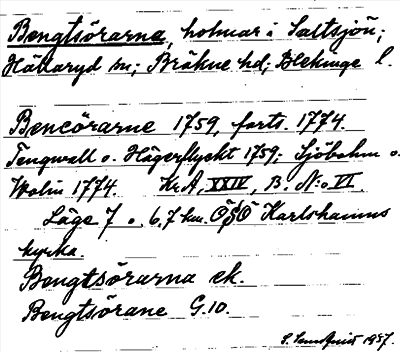 Bengtsörarna, holmar i Saltsjön;
Hällaryd sn; Bräkne hd; Blekinge l.
Bencörarne 1759, forts. 1774.
Tengwell o. Hägerflycht 1759; Sjöbohm o.
Wolin 1774. Kr.A, XXIV, B. N:o VI.
Läge 7 o. 6,7 km. OSO Karlshamns
kyrka.
Bengtsörarna ek.
Bengtsörane G.10.
1937.